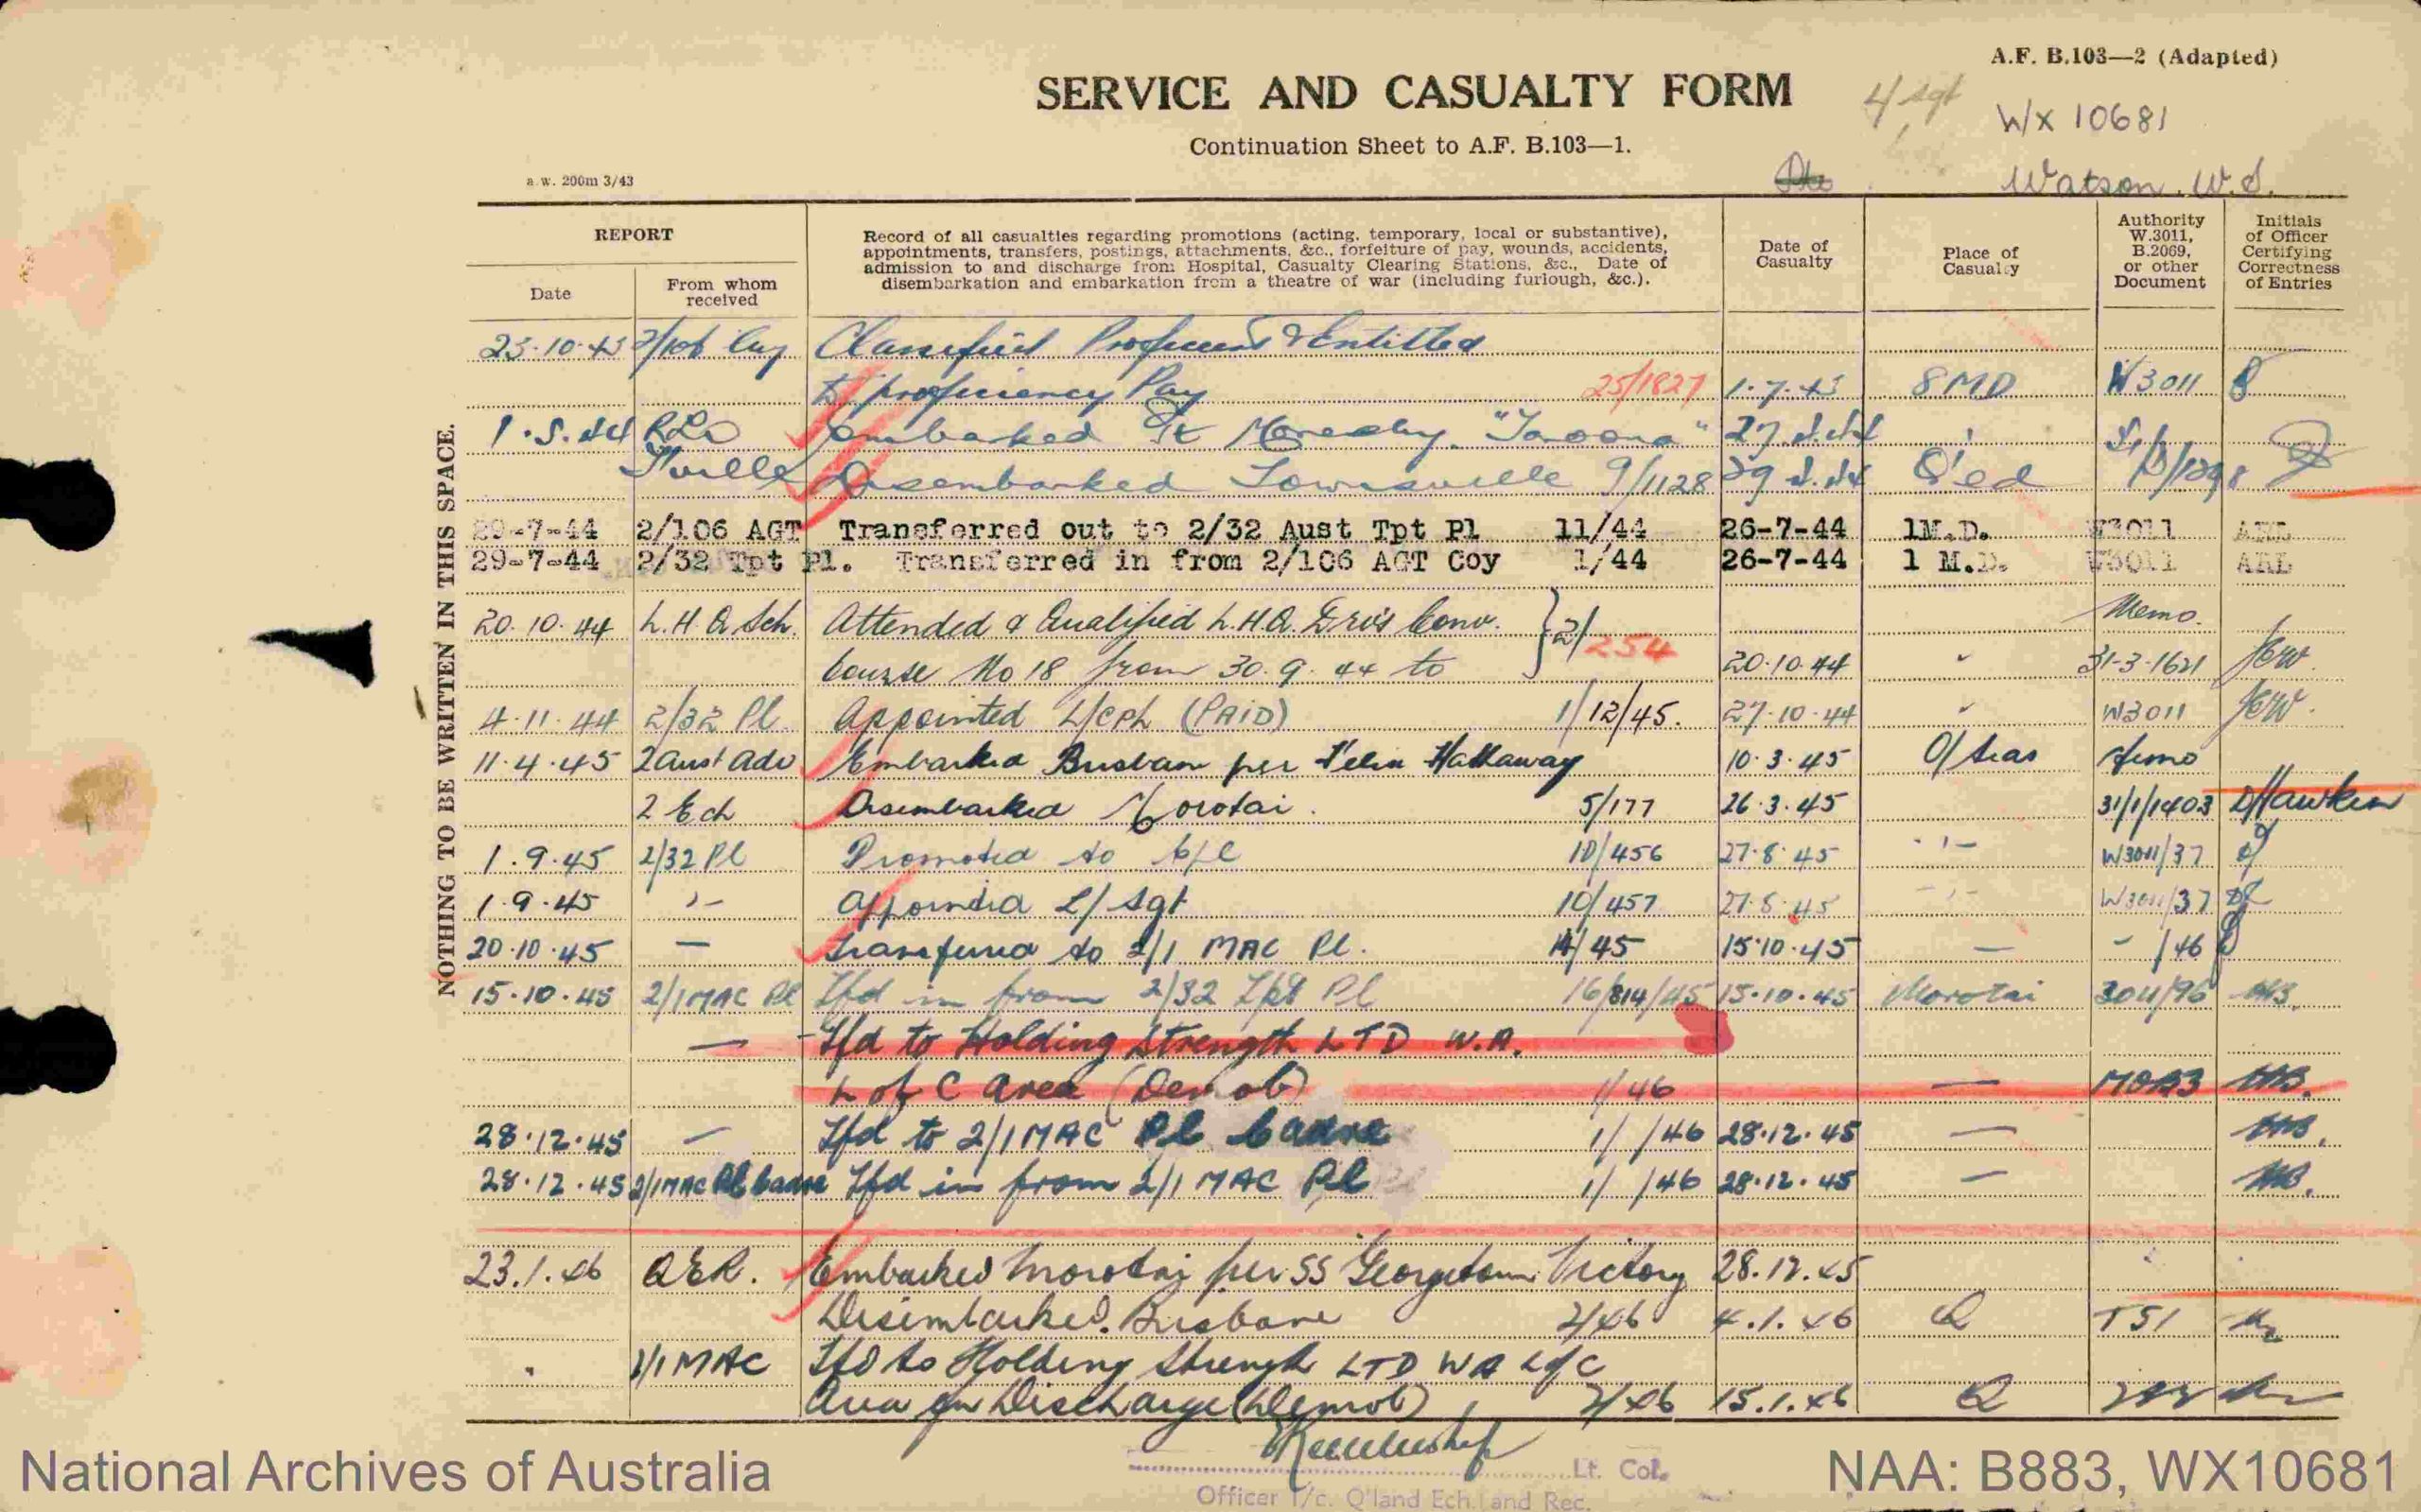 A.F. B.103—2 (Adapted)
SERVICE AND CASUALTY FORM
L/Sgt
WX 10681
Continuation Sheet to A.F. B.103—1.
a.w. 200m 3/43
Pte
Watson. W.S.
NOTHING TO BE WRITTEN IN THIS SPACE.
REPORT
Date
From whom received
Record of all casualties regarding promotions (acting, temporary, local or substantive),
appointments, transfers, postings, attachments, &c., forfeiture of pay, wounds, accidents,
admission to and discharge from Hospital, Casualty Clearing Stations, &c., Date of
disembarkation and embarkation from a theatre of war (including furlough, &c.).
Date of Casualty
Place of Casualty
Authority W.3011, B.2069, or other Document
Initials of Officer Certifying Correctness of Entries
23.10.43 2/106 Coy Classified Proficient & Entitled
to proficiency Pay 25/1827 1.7.43 8MD W3011
1.5.44 RLO Embarked Pt Moresby. "Taroona" 27.4.44
T'ville Disembarked Townsville 9/1128 29.4.44 Q'ld
29-7-44 2/106 AGT Transferred out to 2/32 Aust Tpt Pl 11/44 26-7-44 1M.D. W3011 ARL
29-7-44 2/32 Tpt Pl. Transferred in from 2/106 AGT Coy 1/44 26-7-44 1 M.D. W3011 ARL
20.10.44 L.H.Q Sch. Attended & Qualified L.H.Q. Conv. 2/254 Memo.
Course No 18 from 30.9.44 to 20.10.44 31-3-1621 JEW.
4.11.44 2/32 Pl. Appointed L/CPL (PAID) 1/12/45. 27.10.44 W3011 JEW.
11.4.45 2 Aust Adv Embarked Brisbane per Hathaway 10.3.45 O/Seas
2 Ech Disembarked Morotai. 5/177 26.3.45 31/1/1403
1.9.45 2/32 Pl Promoted to Cpl 10/456 27.8.45 -"- W3011/37
1.9.45 "- Appointed L/Sgt 10/457 27.8.45 -"- W3011/37
20.10.45 — Transferred to 2/1 MAC Pl. 14/45 15.10.45 — - /46
15.10.45 2/1 MAC Pl Tfd in from 2/32 Tpt Pl 16/814/45 15.10.45 Morotai 3011/96
— Tfd to Holding Strength LTD W.A.
L of C Area (Demob) 1/46 —
28.12.45 — Tfd to 2/1 MAC Pl Cadre 1/ /46 28.12.45 —
28.12.45 2/1 MAC Pl Cadre Tfd in from 2/1 MAC Pl 1/ /46 28.12.45 —
23.1.46 QER. Embarked Morotai per SS Georgetown Victory 28.12.45
Disembarked. Brisbane 2/46 4.1.46 Q TSI
" 2/1 MAC Tfd to Holding Strength LTD WA L of C
Area for Discharge (Demob) 2/46 15.1.46 Q
Lt. Col.
Officer I/c. Q'land Ech. and Rec.
National Archives of Australia
NAA: B883, WX10681